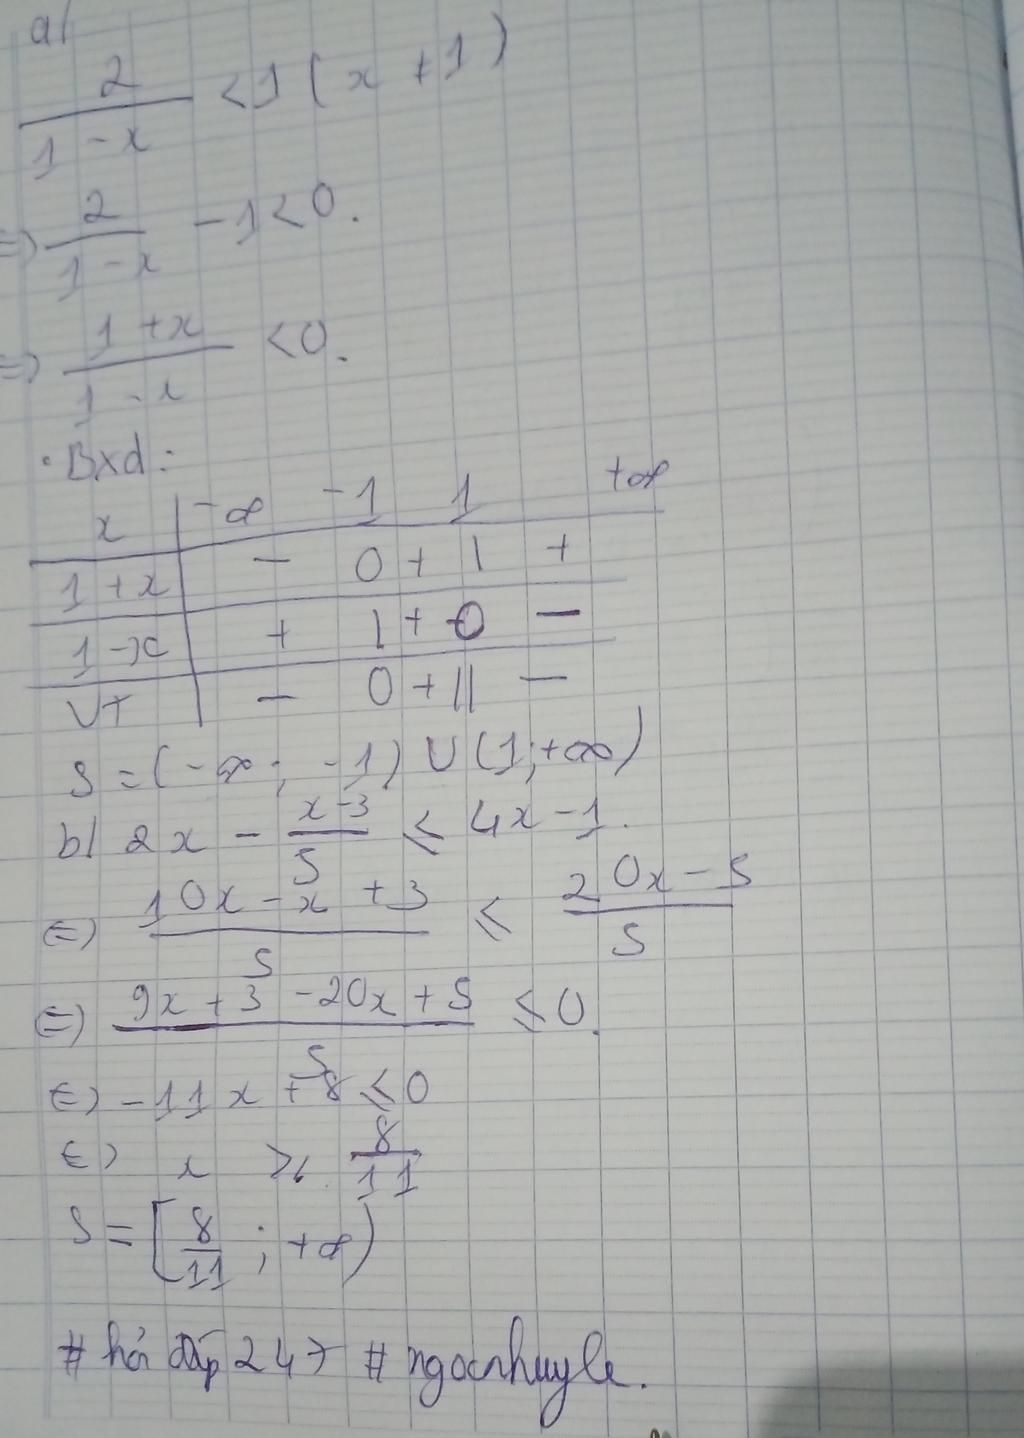 a/
2/(1-x) < 1 (x ≠ 1)
=> 2/(1-x) - 1 < 0.
=> (1+x)/(1-x) < 0.
· Bxd:
x | -∞ -1 1 +∞
1+x | - 0 + | +
1-x | + | + 0 -
VT | - 0 + || -
S = (-∞; -1) ∪ (1; +∞)
b/ 2x - (x-3)/5 ≤ 4x - 1.
<=> (10x - x + 3)/5 ≤ (20x - 5)/5
<=> (9x + 3 - 20x + 5)/5 ≤ 0.
<=> -11x + 8 ≤ 0
<=> x ≥ 8/11
S = [8/11; +∞)
# hỏi đáp 247 # ngocnhuyle.